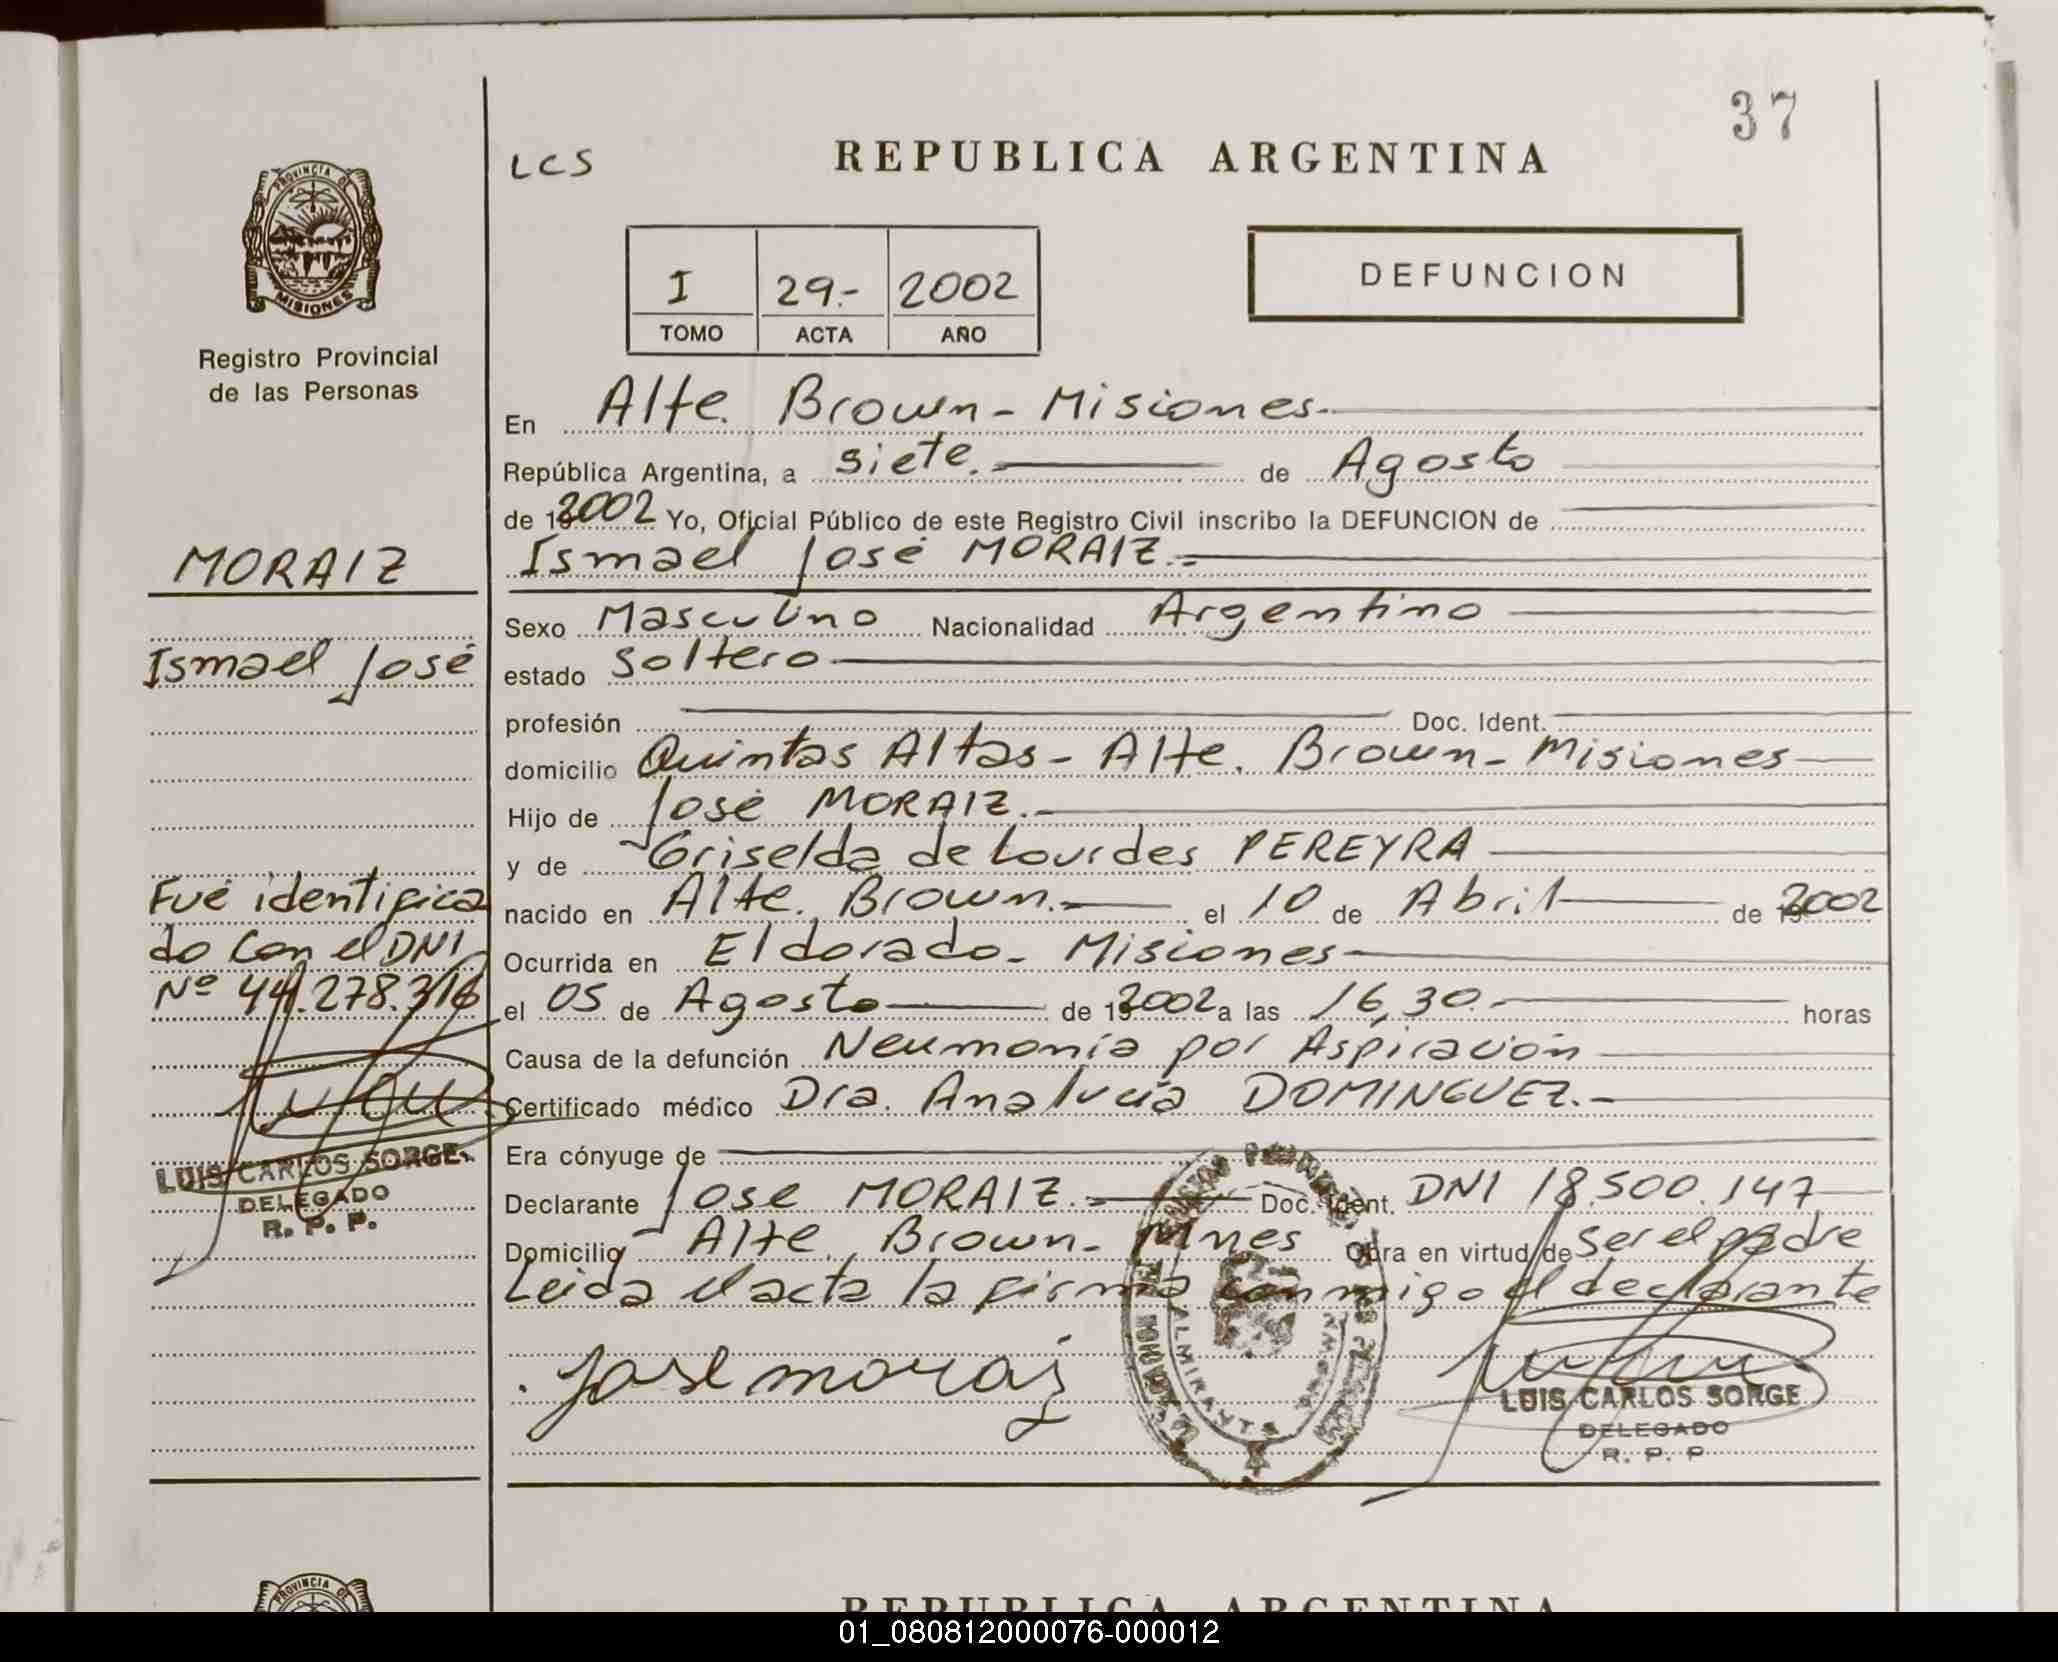 37
LCS
REPUBLICA ARGENTINA
PROVINCIA DE
MISIONES
Registro Provincial
de las Personas
I 29.- 2002
TOMO ACTA AÑO
DEFUNCION
MORAIZ
Ismael José
Fué identifica
do con el DNI
Nº 44.278.316
LUIS CARLOS SORGE
DELEGADO
R. P. P.
En Alte. Brown - Misiones.
República Argentina, a siete. de Agosto
de 2002 Yo, Oficial Público de este Registro Civil inscribo la DEFUNCION de
Ismael José MORAIZ.=
Sexo Masculino Nacionalidad Argentino
estado Soltero
profesión Doc. Ident.
domicilio Quintas Altas - Alte. Brown - Misiones
Hijo de José MORAIZ.-
y de Griselda de Lourdes PEREYRA
nacido en Alte. Brown.- el 10 de Abril de 2002
Ocurrida en Eldorado - Misiones
el 05 de Agosto de 2002 a las 16,30.- horas
Causa de la defunción Neumonía por Aspiración
Certificado médico Dra. Analucía DOMINGUEZ.-
Era cónyuge de
Declarante José MORAIZ.- Doc. Ident. DNI 18.500.147
Domicilio Alte. Brown - Mnes Obra en virtud de ser el padre
Leida el acta la firma conmigo el declarante
Jose moraiz
ALMIRANTE
LUIS CARLOS SORGE
DELEGADO
R. P. P
PROVINCIA DE
REPUBLICA ARGENTINA
01_080812000076-000012